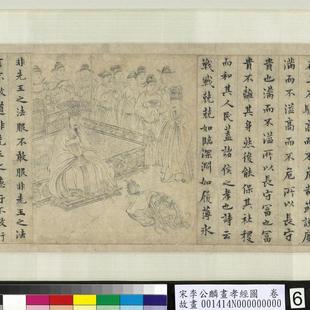 在上不驕高而不危制節謹度
滿而不溢高而不危所以長守
貴也滿而不溢所以長守富也富
貴不離其身然後能保其社稷
而和其人民蓋諸侯之孝也詩云
戰戰兢兢如臨深淵如履薄冰
非先王之法服不敢服非先王之法
言不敢道非先王之德行不敢行
宋李公麟畫孝經圖 卷
故畫 001414N000000000
6